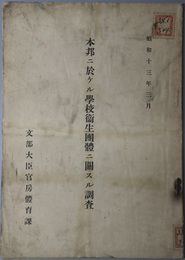 昭和十三年三月
本邦ニ於ケル學校衞生團體ニ關スル調査
文部大臣官房體育課